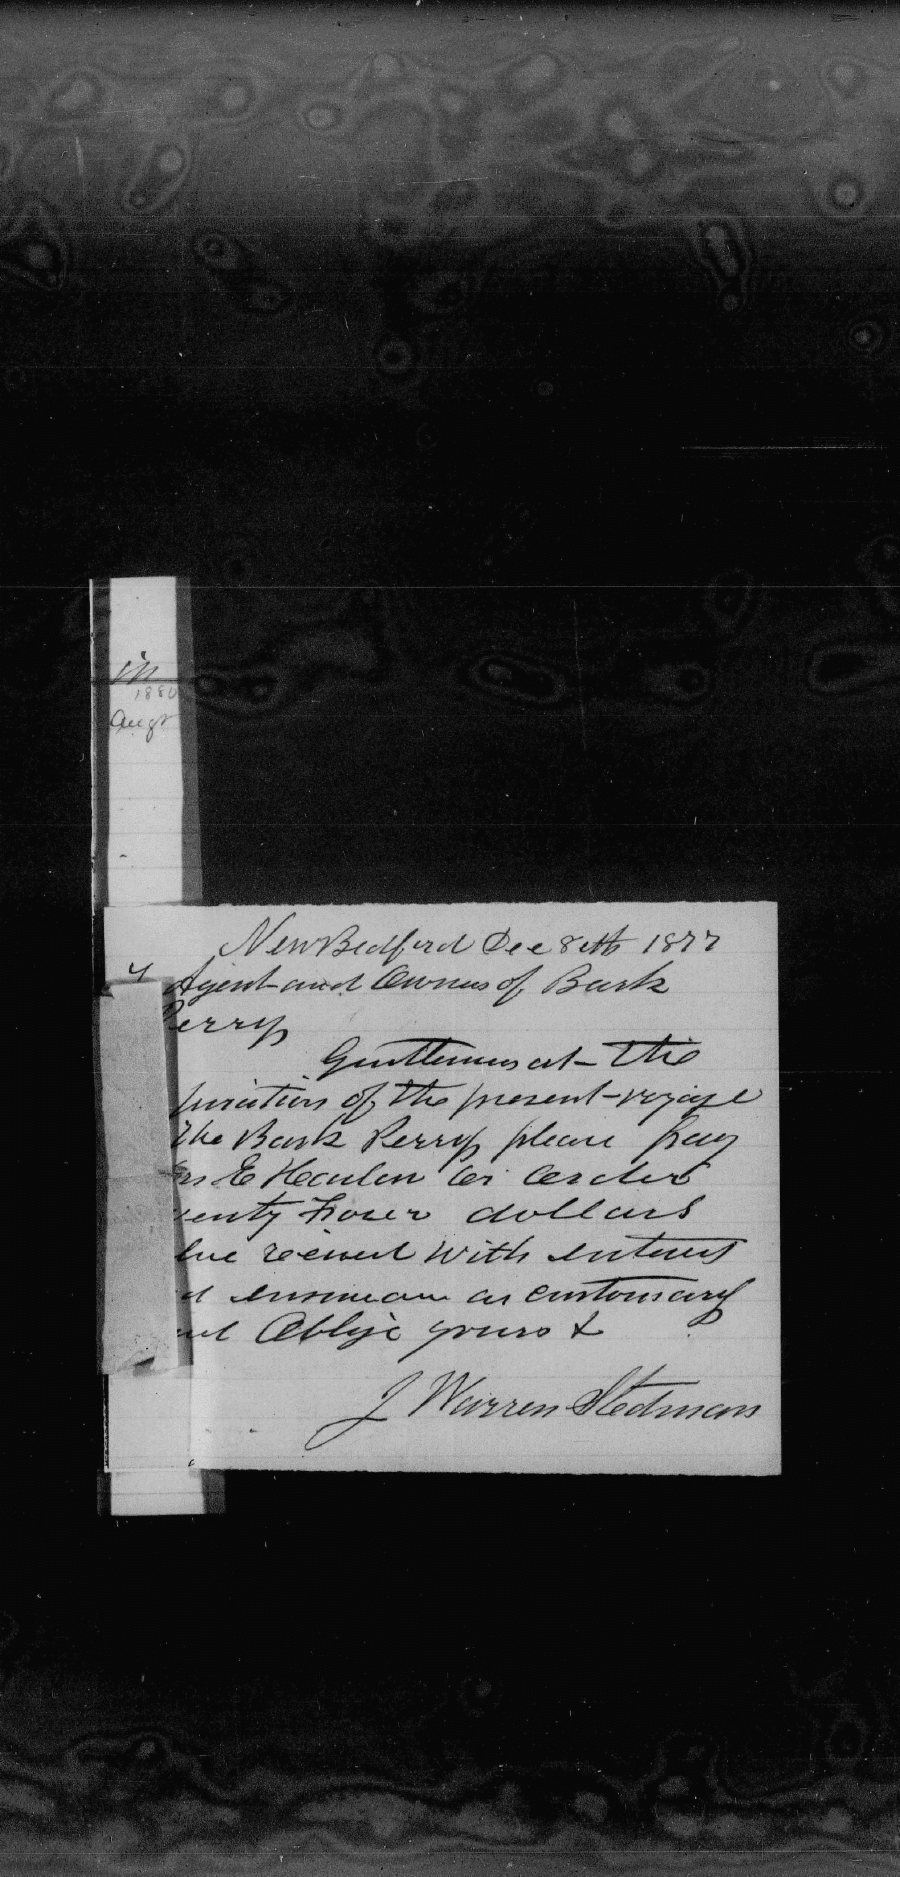 in
1880
Augt
New Bedford Dec 8th 1877
Agent and Owners of Bark
Perry
Gentlemen at the
piration of the present voyage
the Bark Perry please pay
E Hanlon or order
enty Four dollars
lue recived with interest
as customary
Oblige yours &
J Warren Stedman